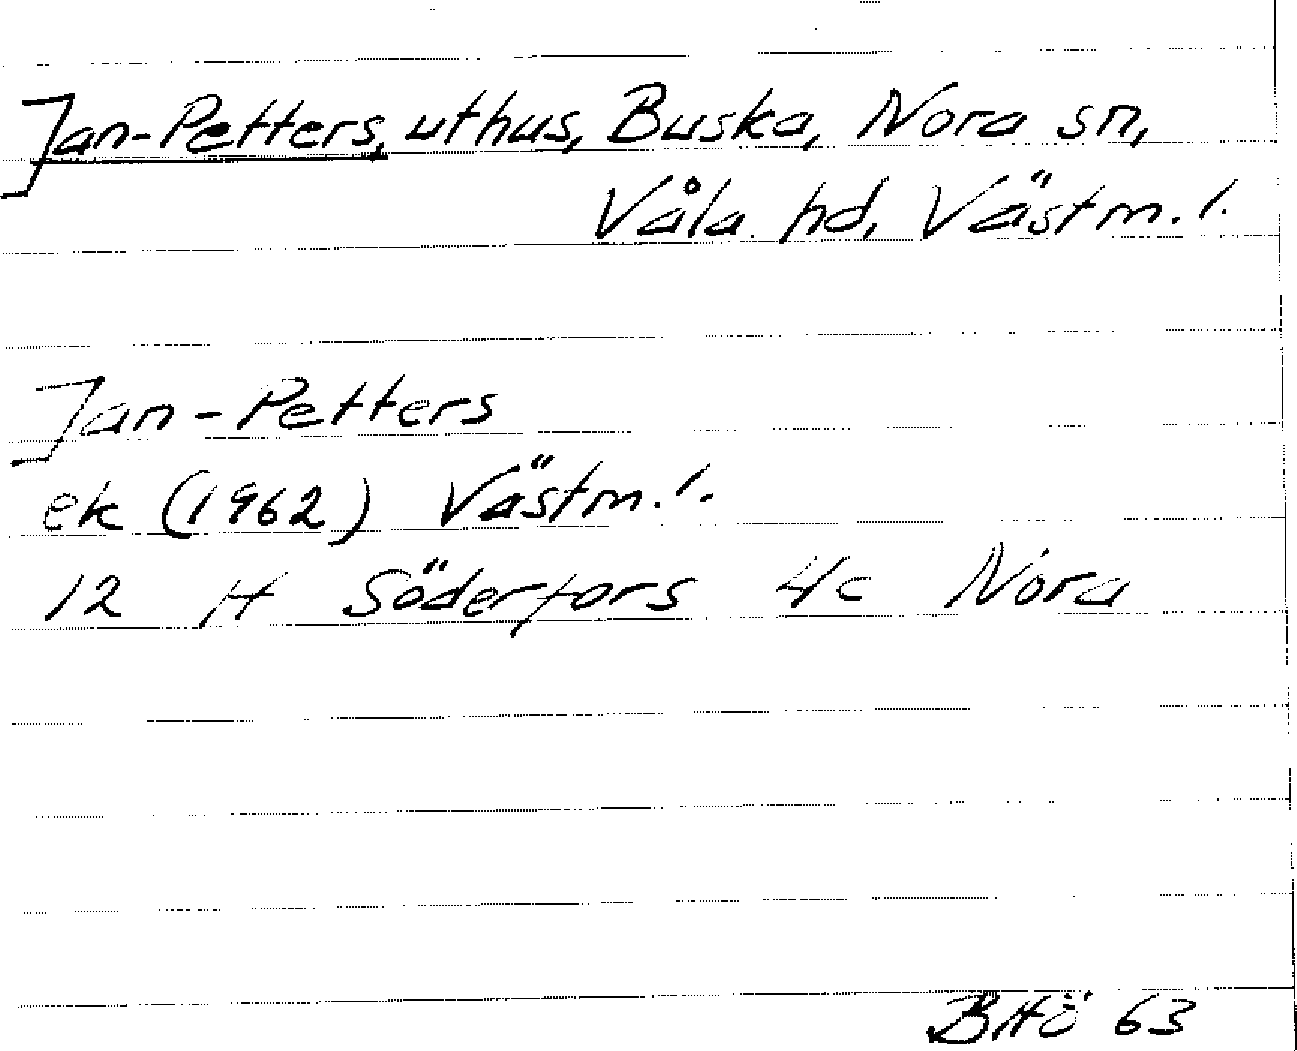 Jan-Petters, uthus, Buska, Nora sn,
Våla hd, Västm. l.
Jan-Petters
ek (1962) Västm. l.
12 H Söderfors 4c Nora
BHö 63